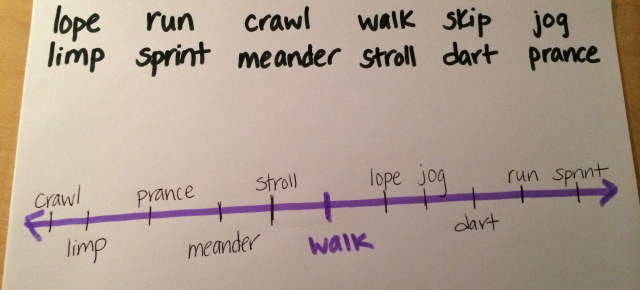 lope run crawl walk skip jog
limp sprint meander stroll dart prance
crawl prance stroll lope jog run sprint
limp meander walk dart